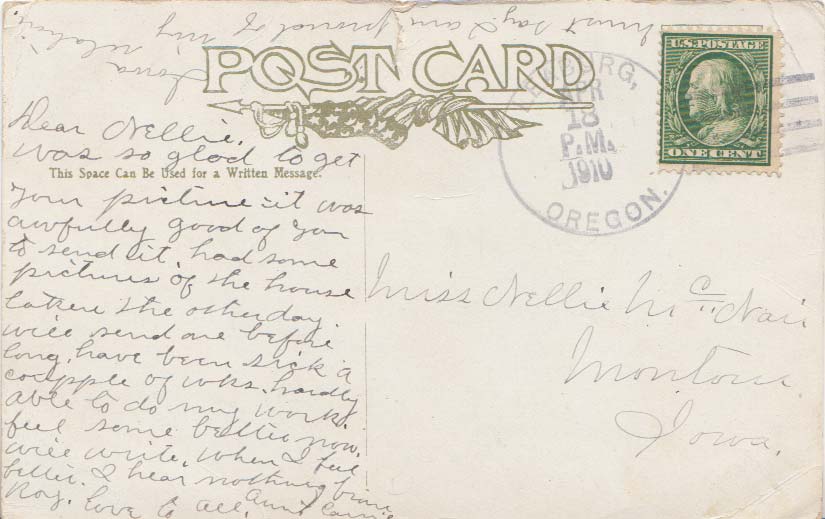 must say I am proud of my
Iowa relation.
POST CARD
U.S. POSTAGE
ONE CENT
APR
18
P.M.
1910
OREGON.
Dear Nellie,
was so glad to get
This Space Can Be Used for a Written Message.
your picture it was
awfully good of you
to send it. had some
pictures of the house
taken the other day.
will send one before
long. have been sick a
cupple of wks. hardly
able to do my work.
feel some better now.
will write. when I feel
better. I hear nothing from
Roy. love to all. Aunt Carrie
Miss Nellie McNair
Montour
Iowa.